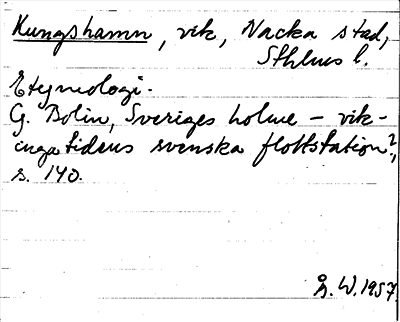 Kungshamn, vik, Nacka stad,
Sthlms l.
Etymologi.
G. Bolin, Sveriges holme – vik-
ingatidens svenska flottstation?,
s. 140.
G. W. 1957.